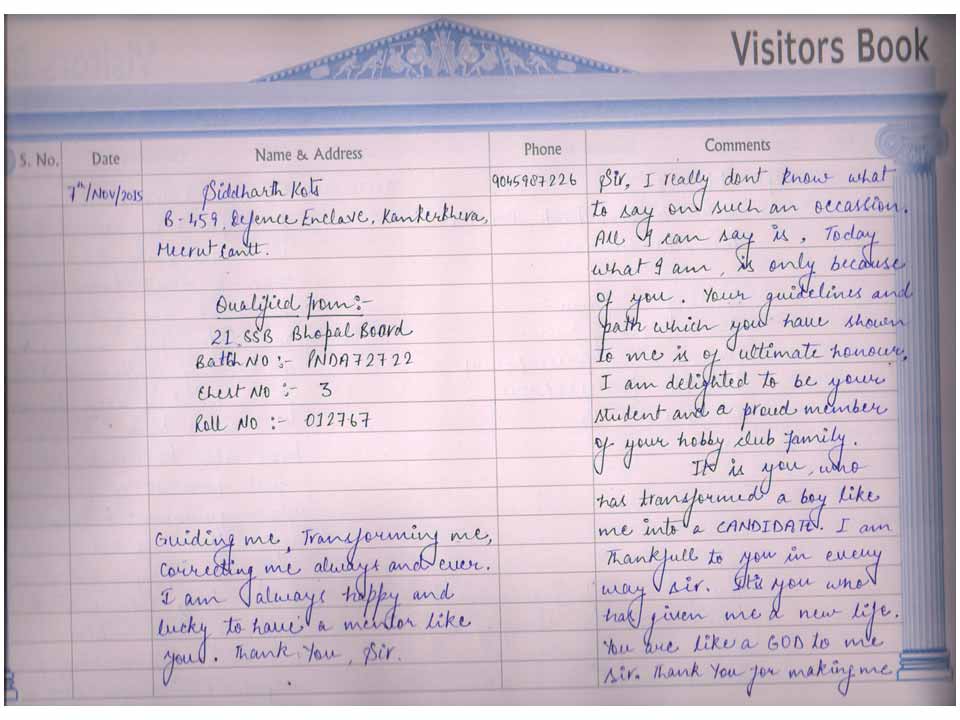 Visitors Book
S. No.
Date
Name & Address
Phone
Comments
7th/Nov/2015
Siddharth Kots
B-459, Defence Enclave, Kankerkhera,
Meerut Cantt.
Qualified from:-
21 SSB Bhopal Board
Batch No :- PNDA72722
Chest No :- 3
Roll No :- 012767
9045987226
Sir, I really dont know what
to say on such an occassion.
All I can say is, Today
what I am, is only because
of you. Your guidelines and
path which you have shown
to me is of ultimate honour.
I am delighted to be your
student and a proud member
of your hobby club family.
It is you, who
has transformed a boy like
me into a CANDIDATE. I am
Thankfull to you in every
way sir. It is you who
has given me a new life.
You are like a GOD to me
sir. Thank You for making me
Guiding me, Transforming me,
Correcting me always and ever.
I am always happy and
lucky to have a mentor like
you. Thank You, Sir.